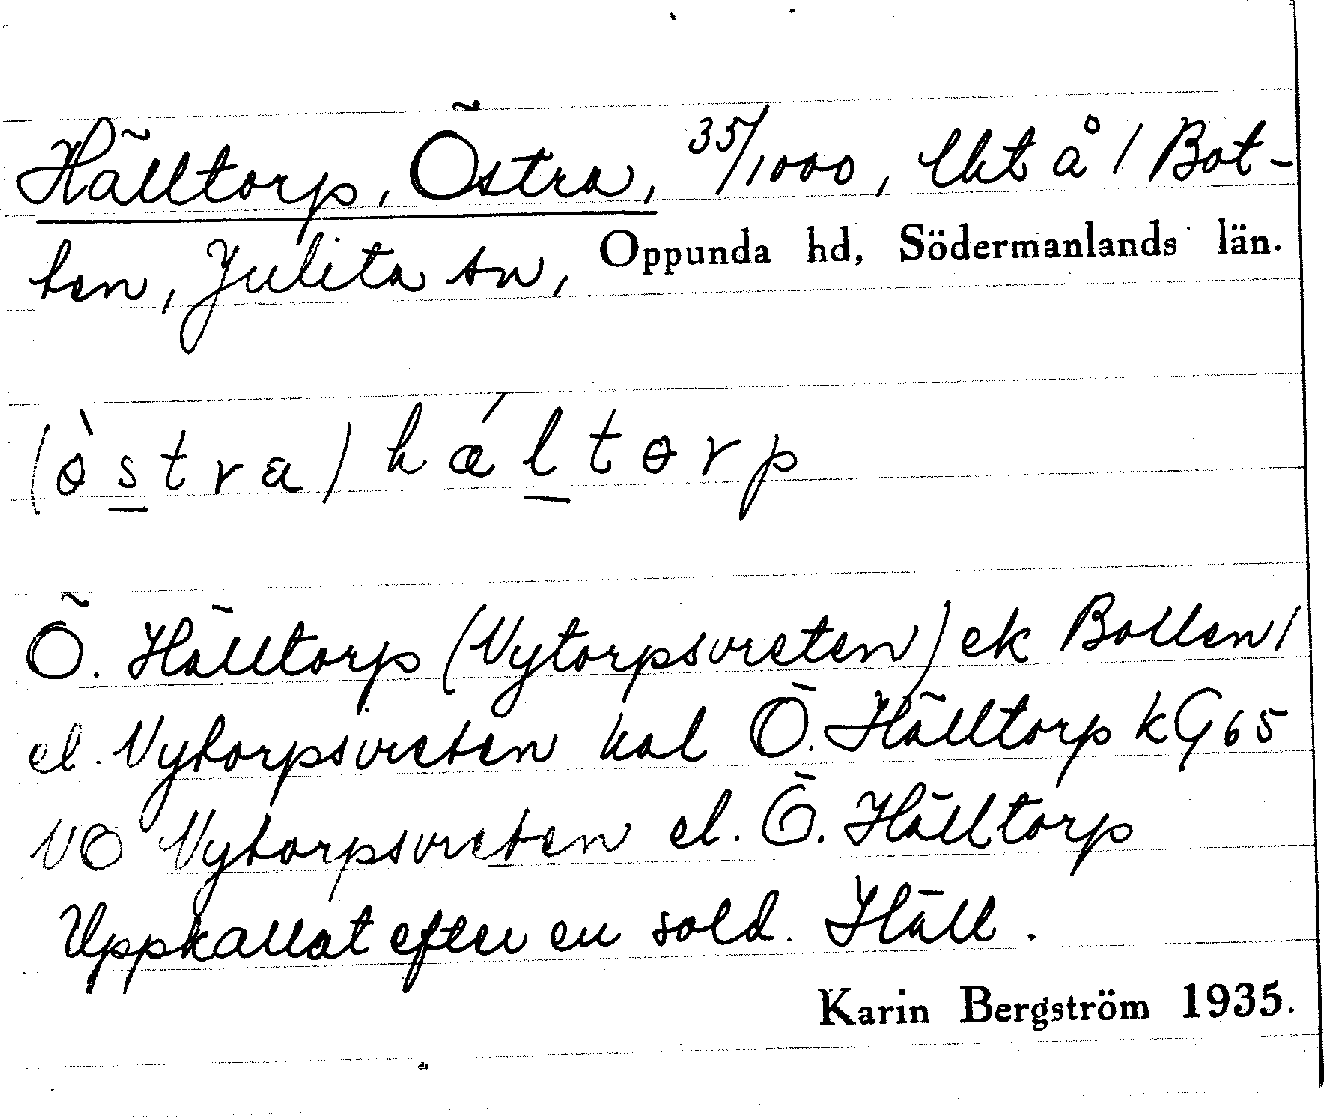 Hälltorp, Östra, 35/1000, lht å / Bot-
ten, Julita sn, Oppunda hd, Södermanlands län.
(ö̀stra) hǽltorp
Ö. Hälltorp (Nytorpsvreten) ek Botten /
el. Nytorpsvreten kal Ö. Hälltorp kG65
NO Nytorpsvreten el. Ö. Hälltorp
Uppkallat efter en sold. Häll.
Karin Bergström 1935.